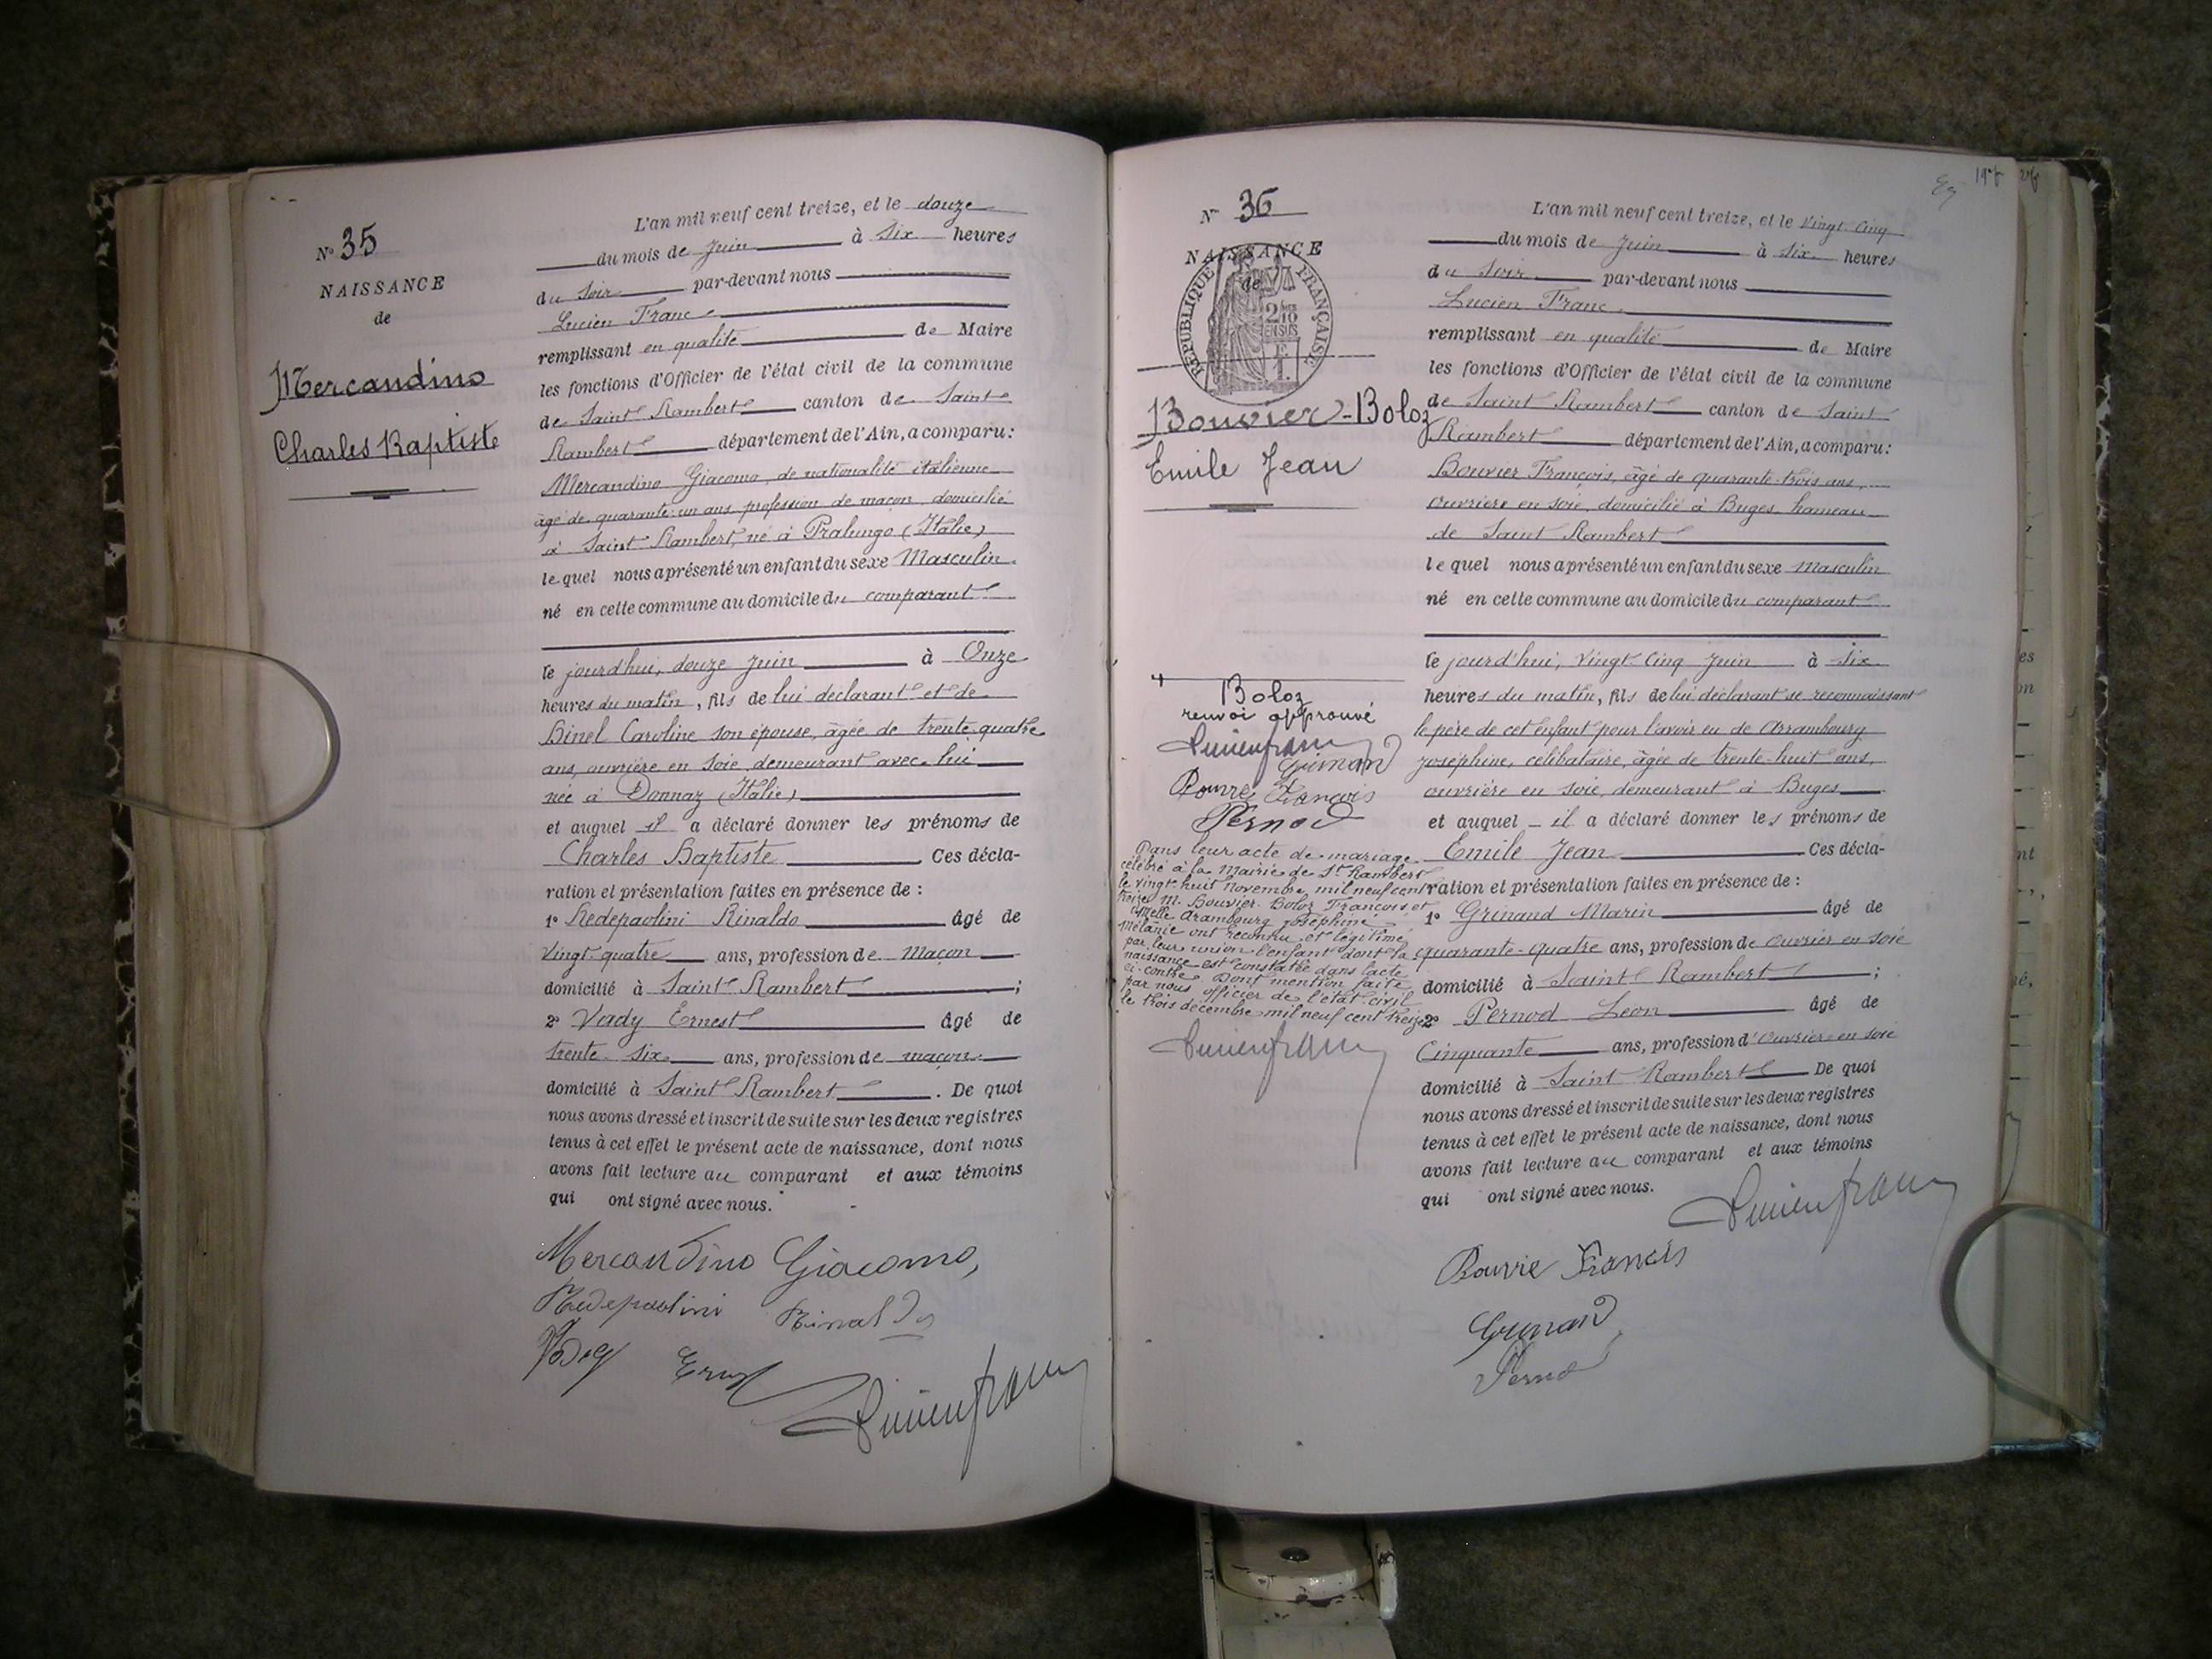 N° 35
NAISSANCE
de
Mercandino
Charles Baptiste
L'an mil neuf cent treize, et le douze
du mois de Juin à Six heures
du Soir par-devant nous
Lucien Franc
remplissant en qualité de Maire
les fonctions d'Officier de l'état civil de la commune
de Saint Rambert canton de Saint
Rambert département de l'Ain, a comparu :
Mercandino Giacomo, de nationalité italienne
âgé de quarante un ans, profession de maçon, domicilié
à Saint Rambert, né à Pralungo (Italie)
lequel nous a présenté un enfant du sexe Masculin
né en cette commune au domicile du comparant
le jourd'hui, douze Juin à Onze
heures du matin, fils de lui déclarant et de
Binel Caroline son épouse, âgée de trente quatre
ans, ouvrière en Soie, demeurant avec lui
née à Donnaz (Italie)
et auquel il a déclaré donner les prénoms de
Charles Baptiste. Ces décla-
ration et présentation faites en présence de :
1° Redepaolini Rinaldo âgé de
Vingt quatre ans, profession de Maçon
domicilié à Saint Rambert ;
2° Vady Ernest âgé de
trente Six ans, profession de maçon
domicilié à Saint Rambert. De quoi
nous avons dressé et inscrit de suite sur les deux registres
tenus à cet effet le présent acte de naissance, dont nous
avons fait lecture au comparant et aux témoins
qui ont signé avec nous.
Mercandino Giacomo,
Redepaolini Rinaldo
Lucien franc
N° 36
NAISSANCE
de
RÉPUBLIQUE FRANÇAISE
Bouvier-Boloz
Emile Jean
L'an mil neuf cent treize, et le Vingt Cinq
du mois de Juin à Six heures
du Soir par-devant nous
Lucien Franc
remplissant en qualité de Maire
les fonctions d'Officier de l'état civil de la commune
de Saint Rambert canton de Saint
Rambert département de l'Ain, a comparu :
Bouvier François, âgé de quarante-trois ans,
ouvrier en Soie, domicilié à Buges hameau
de Saint Rambert
lequel nous a présenté un enfant du sexe Masculin
né en cette commune au domicile du comparant
le jourd'hui, Vingt Cinq Juin à Six
heures du matin, fils de lui déclarant se reconnaissant
le père de cet enfant pour l'avoir eu de Arrambourg
Joséphine, célibataire, âgée de trente-huit ans,
ouvrière en Soie, demeurant à Buges
et auquel il a déclaré donner les prénoms de
Emile Jean Ces décla-
ration et présentation faites en présence de :
1° Grinand Marin âgé de
quarante-quatre ans, profession de Ouvrier en Soie
domicilié à Saint Rambert ;
2° Pernod Leon âgé de
Cinquante ans, profession d'Ouvrier en Soie
domicilié à Saint Rambert De quoi
nous avons dressé et inscrit de suite sur les deux registres
tenus à cet effet le présent acte de naissance, dont nous
avons fait lecture au comparant et aux témoins
qui ont signé avec nous.
Lucien franc
Bouvie Francis
Grinand
Pernod
Boloz
renvoi approuvé
Lucien franc
Grinand
François
Pernod
Dans leur acte de mariage
célébré à la Mairie de St Rambert
le vingt huit Novembre mil neuf cent
treize M. Bouvier-Boloz François et
Melle Arambourg Joséphine
Mélanie ont reconnu et légitimé
par leur union l'enfant dont la
naissance est constatée dans l'acte
ci-contre Dont mention faite
par nous officier de l'état civil
le trois décembre mil neuf cent treize
Lucien franc